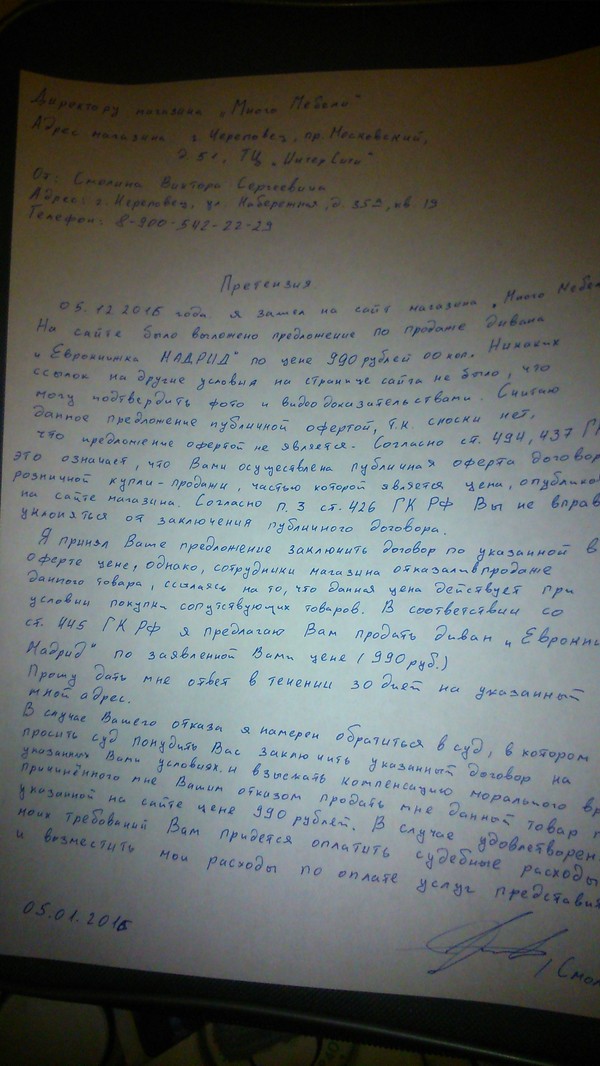 Директору магазина „Много Мебели"
Адрес магазина г. Череповец, пр. Московский,
д. 51, ТЦ „Интер Сити"
От: Смолина Виктора Сергеевича
Адрес: г. Череповец, ул. Набережная, д. 359, кв 19
Телефон: 8-900-542-22-29
Претензия
05.12.2015 года я зашел на сайт магазина „Много Мебели
На сайте было выложено предложение по продаже дивана
„Еврокнижка МАДРИД" по цене 990 рублей 00 коп. Никаких
ссылок на другие условия на странице сайта не было, что
могу подтвердить фото и видео доказательствами. Считаю
данное предложение публичной офертой, т.к. сноски нет,
что предложение офертой не является. Согласно ст. 494, 437 ГК
это означает, что Вами осуществлена публичная оферта договор
розничной купли-продажи, частью которой является цена, опубликов
на сайте магазина. Согласно п. 3 ст. 426 ГК РФ Вы не вправ
уклоняться от заключения публичного договора.
Я принял Ваше предложение заключить договор по указанной в
оферте цене, однако, сотрудники магазина отказали в продаже
данного товара, ссылаясь на то, что данная цена действует при
условии покупки сопутствующих товаров. В соответствии со
ст. 445 ГК РФ я предлагаю Вам продать диван „Еврокни
Мадрид" по заявленной Вами цене (990 руб.)
Прошу дать мне ответ в течении 30 дней на указанный
мной адрес.
В случае Вашего отказа я намерен обратиться в суд, в котором
просить суд понудить Вас заключить указанный договор на
указанных Вами условиях и взыскать компенсацию морального вр
причинённого мне Вашим отказом продать мне данный товар п
указанной на сайте цене 990 рублей. В случае удовлетворен
моих требований Вам придется оплатить судебные расходы
и возместить мои расходы по оплате услуг представи
05.01.2016
/ Смол